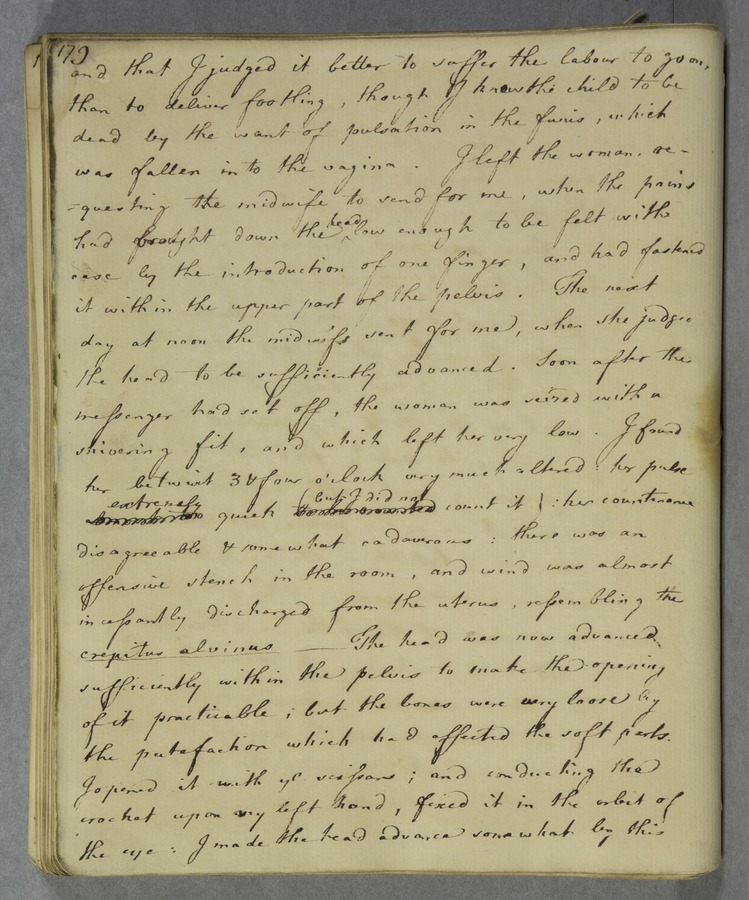 179
and that I judged it better to suffer the labour to go on,
than to deliver footling, though I knew the child to be
dead by the want of pulsation in the funis, which
was fallen into the vagina. I left the woman, re-
-questing the midwife to send for me, when the pains
had brought down the head low enough to be felt with
ease by the introduction of one finger, and had fastened
it within the upper part of the pelvis. The next
day at noon the midwife sent for me, when she judge
the head to be sufficiently advanced. Soon after the
messenger had set off, the woman was seized with a
shivering fit, and which left her very low. I found
her betwixt 3 & four o'clock very much altered: her pulse
extremely quick (but I did not count it): her countenance
disagreeable & somewhat cadaverous: there was an
offensive stench in the room, and wind was almost
incessantly discharged from the uterus, resembling the
crepitus alvinus — The head was now advanced
sufficiently within the pelvis to make the opening
of it practicable; but the bones were very loose by
the putefaction which had affected the soft parts.
I opened it with ye scissars; and conducting the
crochet upon my left hand, fixed it in the orbit of
the eye: I made the head advance somewhat by this